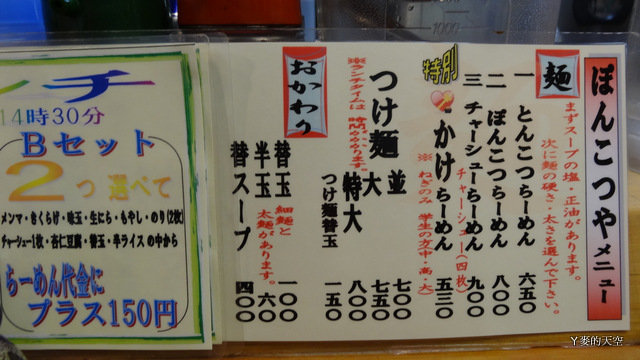 ぽんこつやメニュー
麺
まずスープの塩・正油があります。
次に麺の硬さ・太さを選んで下さい。
一 とんこつらーめん 六五〇
二 ぽんこつらーめん 八〇〇
三 チャーシューらーめん 九〇〇
チャーシュー(四枚)
特別
かけらーめん 五三〇
※ねぎのみ 学生の方(中・高・大)
つけ麺
※ランチタイムは時間がかかります。
並 七〇〇
大 七五〇
特大 八〇〇
つけ麺替玉 一五〇
おかわり
替玉 一〇〇
細麺と太麺があります。
半玉 六〇
替スープ 四〇〇
ンチ
14時30分
Bセット
2つ選べて
メンマ・きくらげ・味玉・生にら・もやし・のり(2枚)
チャーシュー1枚・杏仁豆腐・替玉・半ライスの中から
らーめん代金に
プラス150円
1000
ㄚ麥的天空